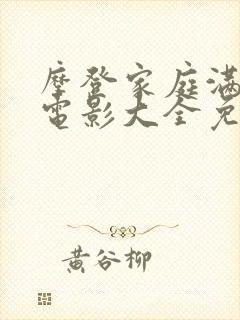 摩登家庭满
电影大全免
黄谷柳